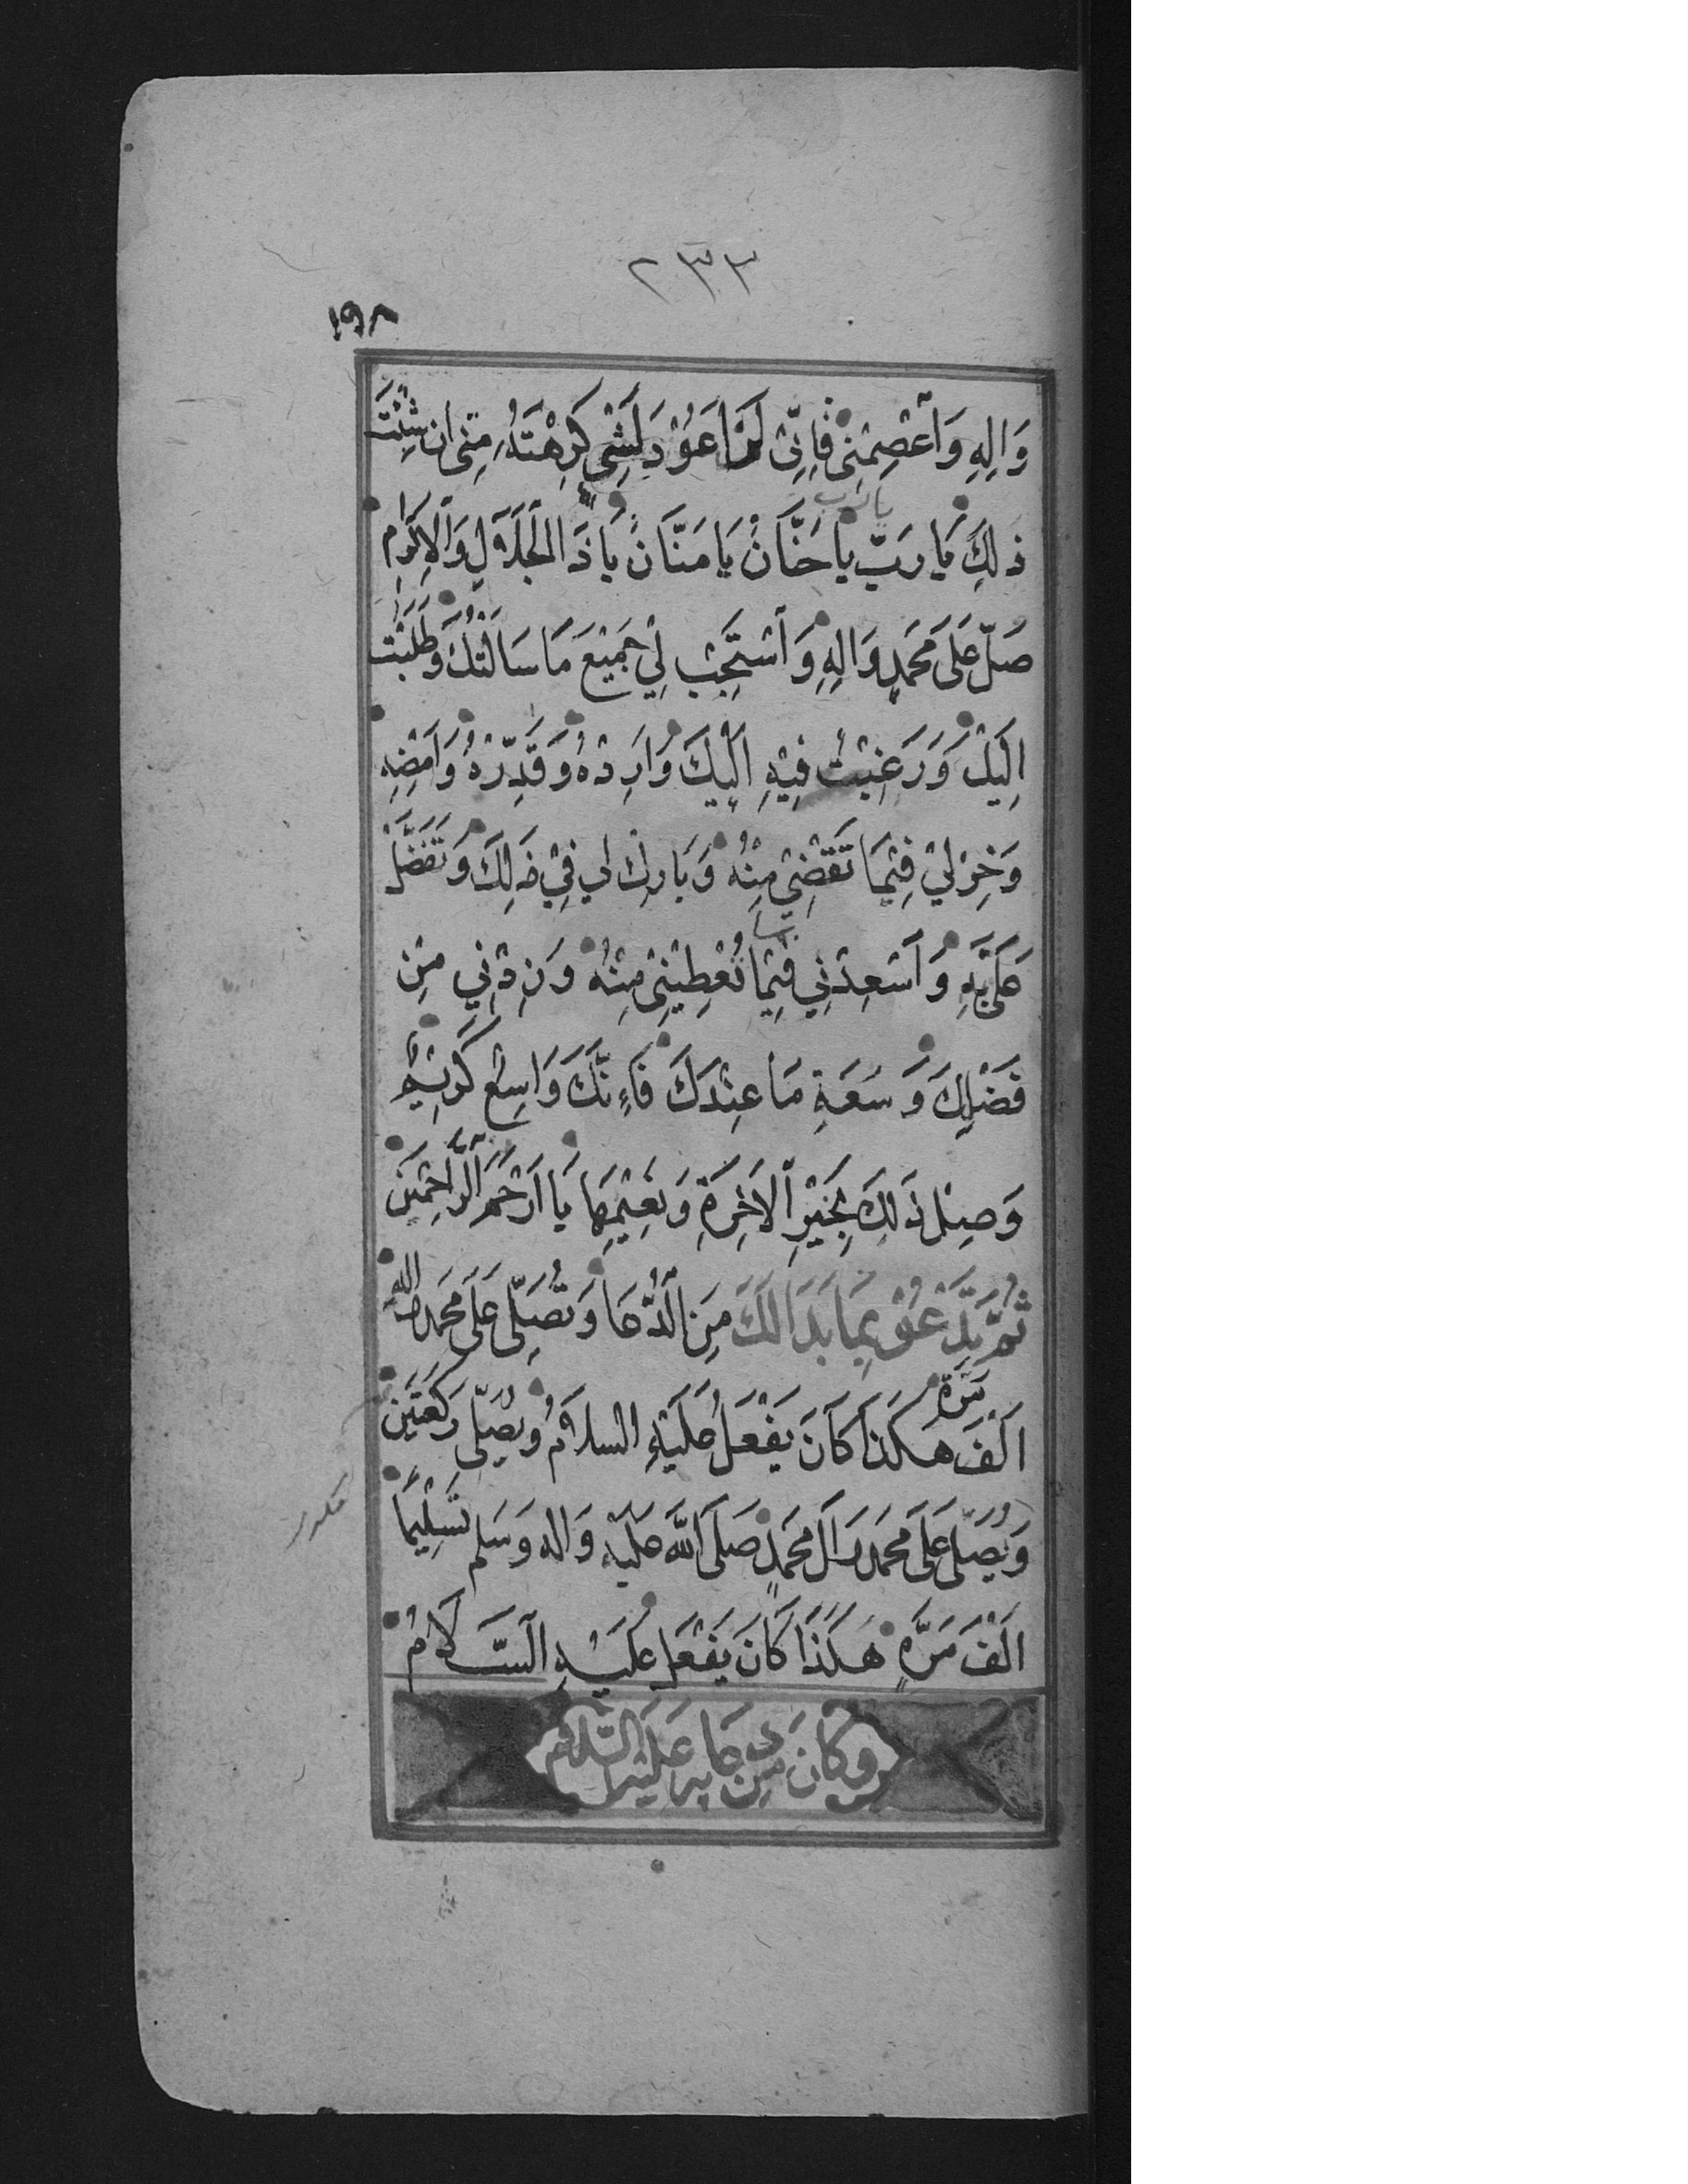 ٢٣٣
١٩٨
وَالِهِ وَاعْصِمْنِی فَاِنِّی لَنْ اَعُوْدَ لِشَیْ كَرِهْتَهُ مِنّی ان شِئْتَ
ذلِكَ يَا رَبِّ يا حَنَّانُ يَا مَنَّانُ يَا ذَا الْجَلَالِ وَالْاِكْرَامِ
يا رب
صَلِّ عَلَى مُحَمَّدٍ وَالِهِ وَاسْتَجِبْ لِيْ جَمِيْعَ مَا سَاَلْتُكَ وَطَلَبْتُ
اِلَيْكَ وَرَغِبْتُ فِيْهِ اِلَيْكَ وَاَرِدْهُ وَقَدِّرْهُ وَامْضِهِ
وَخِرْ لِيْ فِيْمَا تَقْضِیْ مِنْهُ وَبَارِكْ لي فِيْ ذَلِكَ وَتَفَضَّلْ
عَلَیَّ بِهِ وَاَسْعِدْنِي فِيْمَا تُعْطِيْنِیْ مِنْهُ وَزِدْنِي مِنْ
فَضْلِكَ وَسَعَةِ مَا عِنْدَكَ فَاِنَّكَ وَاسِعٌ كَرِيْمٌ
وَصِلْ ذَلِكَ بِخَيْرِ الْاخِرَةِ وَنَعِيْمِهَا يَا اَرْحَمَ الرَّاحِمِيْنَ
ثُمَّ تَدْعُوْ بِمَا بَدَا لَكَ مِنَ الدُّعَا وَتُصَلِّی عَلَى مُحَمَّدٍ واله
اَلْفَ مَرَّةٍ هَكَذَا كَانَ يَفْعَلُ عَلَيْهِ السلَامُ وَيُصَلّی رَكْعَتَيْنِ
وَيُصَلِّی عَلَى مُحَمَّدٍ وَآلِ مُحَمَّدٍ صَلَّى اللّٰهُ عَلَيْهِ وَاله وَسَلم تَسْلِيْمًا
مكرر
اَلْفَ مَرَّةٍ هَكَذَا كَانَ يَفْعَلُ عَلَيْهِ السَّلَامُ
وَكَانَ مِنْ دُعَایِهِ عَلَيْهِ السَّلَامُ